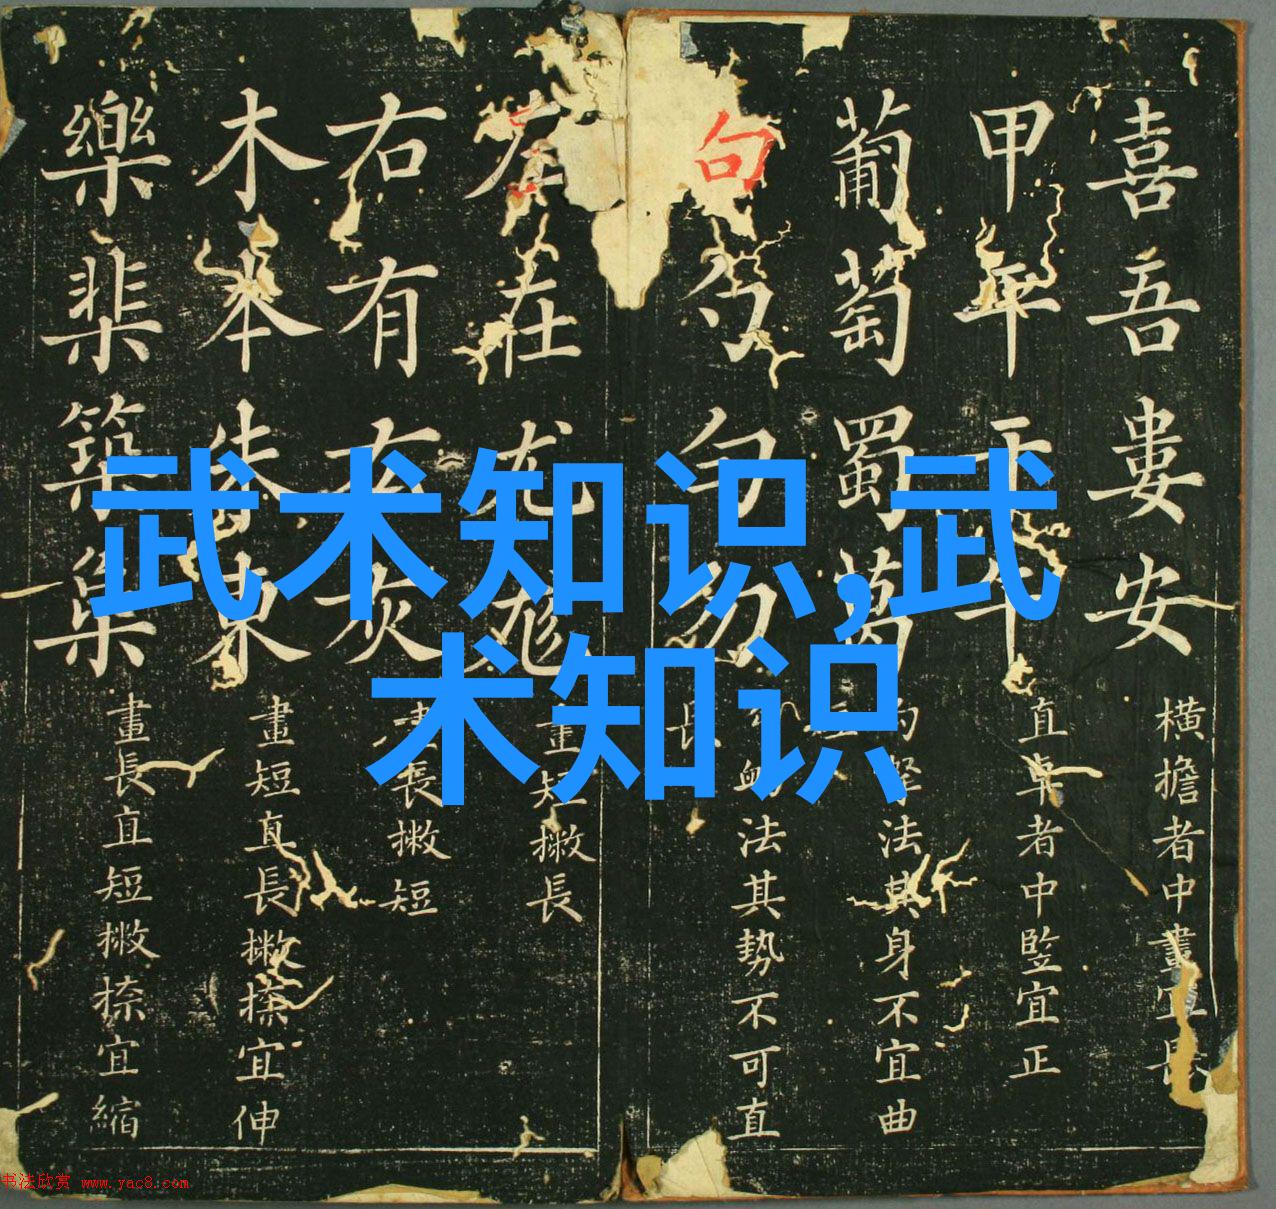 武术知识,武
术知识
喜吾婁安
橫擔者中畫宜長
甲年
直卓者中竪宜正
葡萄蜀
法其身不宜曲
句勺勿
法其勢不可直
左在尤尨
畫短撇長
右有灰
畫長撇短
木本朱
畫短直長撇捺宜伸
樂棐築
畫長直短撇捺宜縮
书法欣赏 www.yac8.com